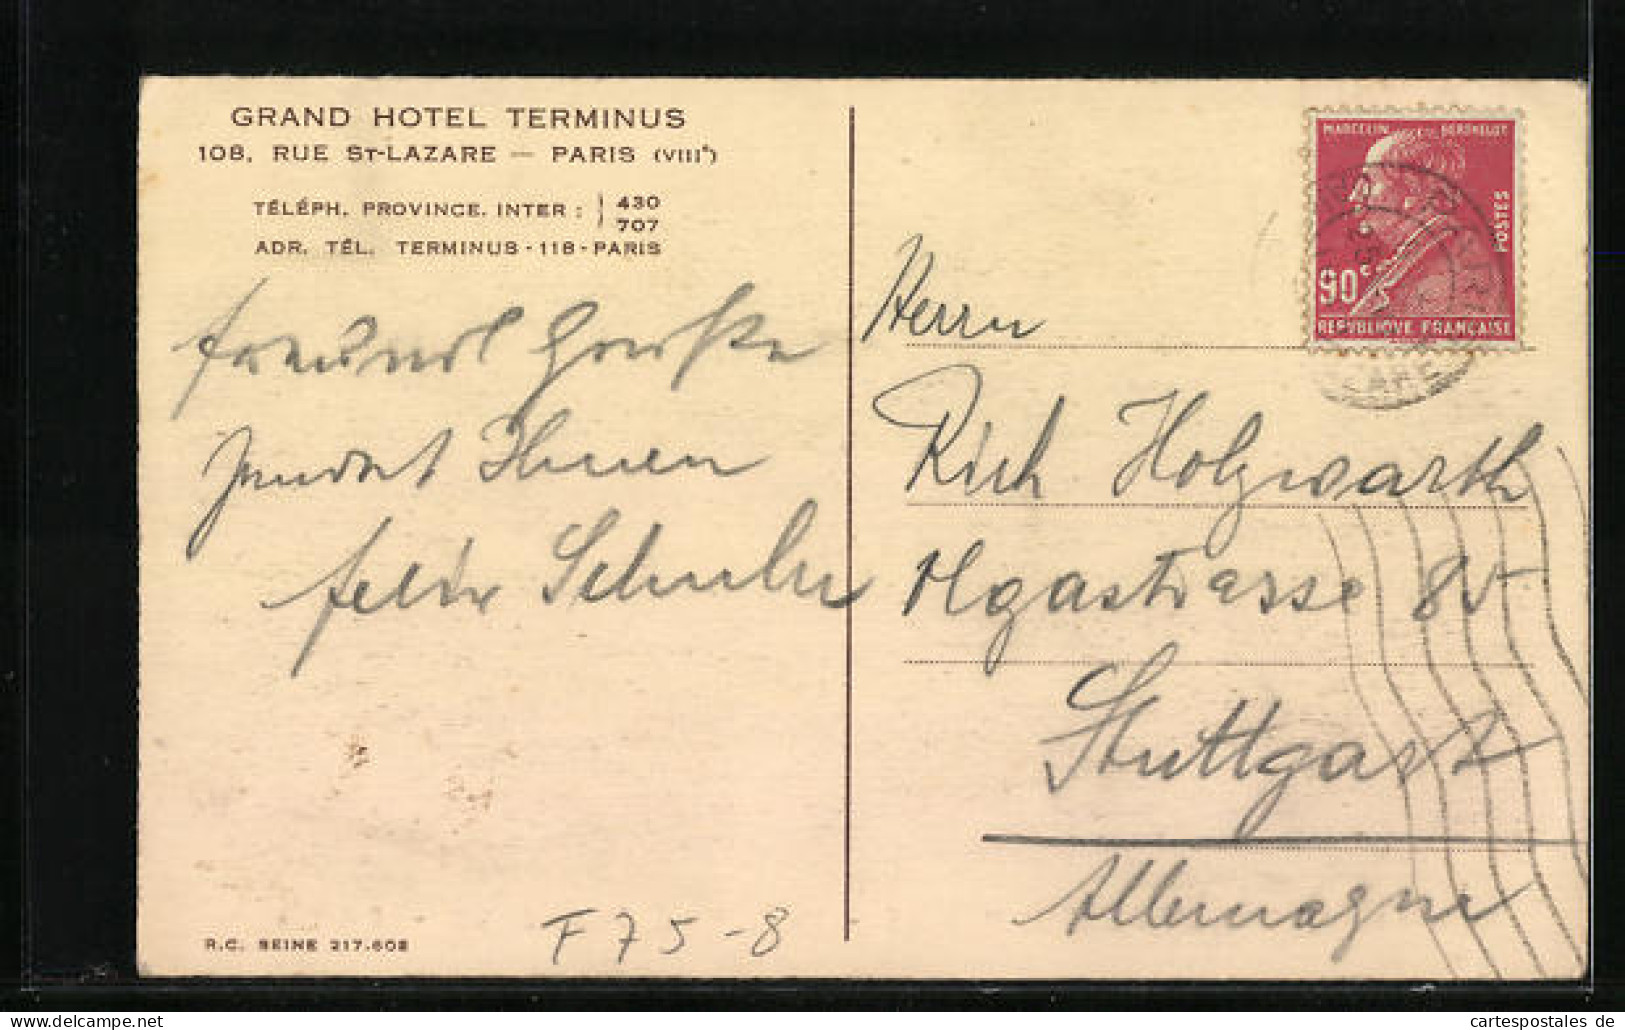 GRAND HOTEL TERMINUS
108, RUE ST-LAZARE — PARIS (VIIIe)
TÉLÉPH. PROVINCE. INTER : 430
707
ADR. TÉL. TERMINUS - 118 - PARIS
freundl Grüsse
sendet Ihnen
Felix Schuler
R.C. SEINE 217.602
F 75 - 8
MARCELIN BERTHELOT
POSTES
90c
REPVBLIQVE FRANÇAISE
LAZARE
Herrn
Rich Holzwarth
Olgastrasse 85
Stuttgart
Allemagne
www.delcampe.net
cartespostales de